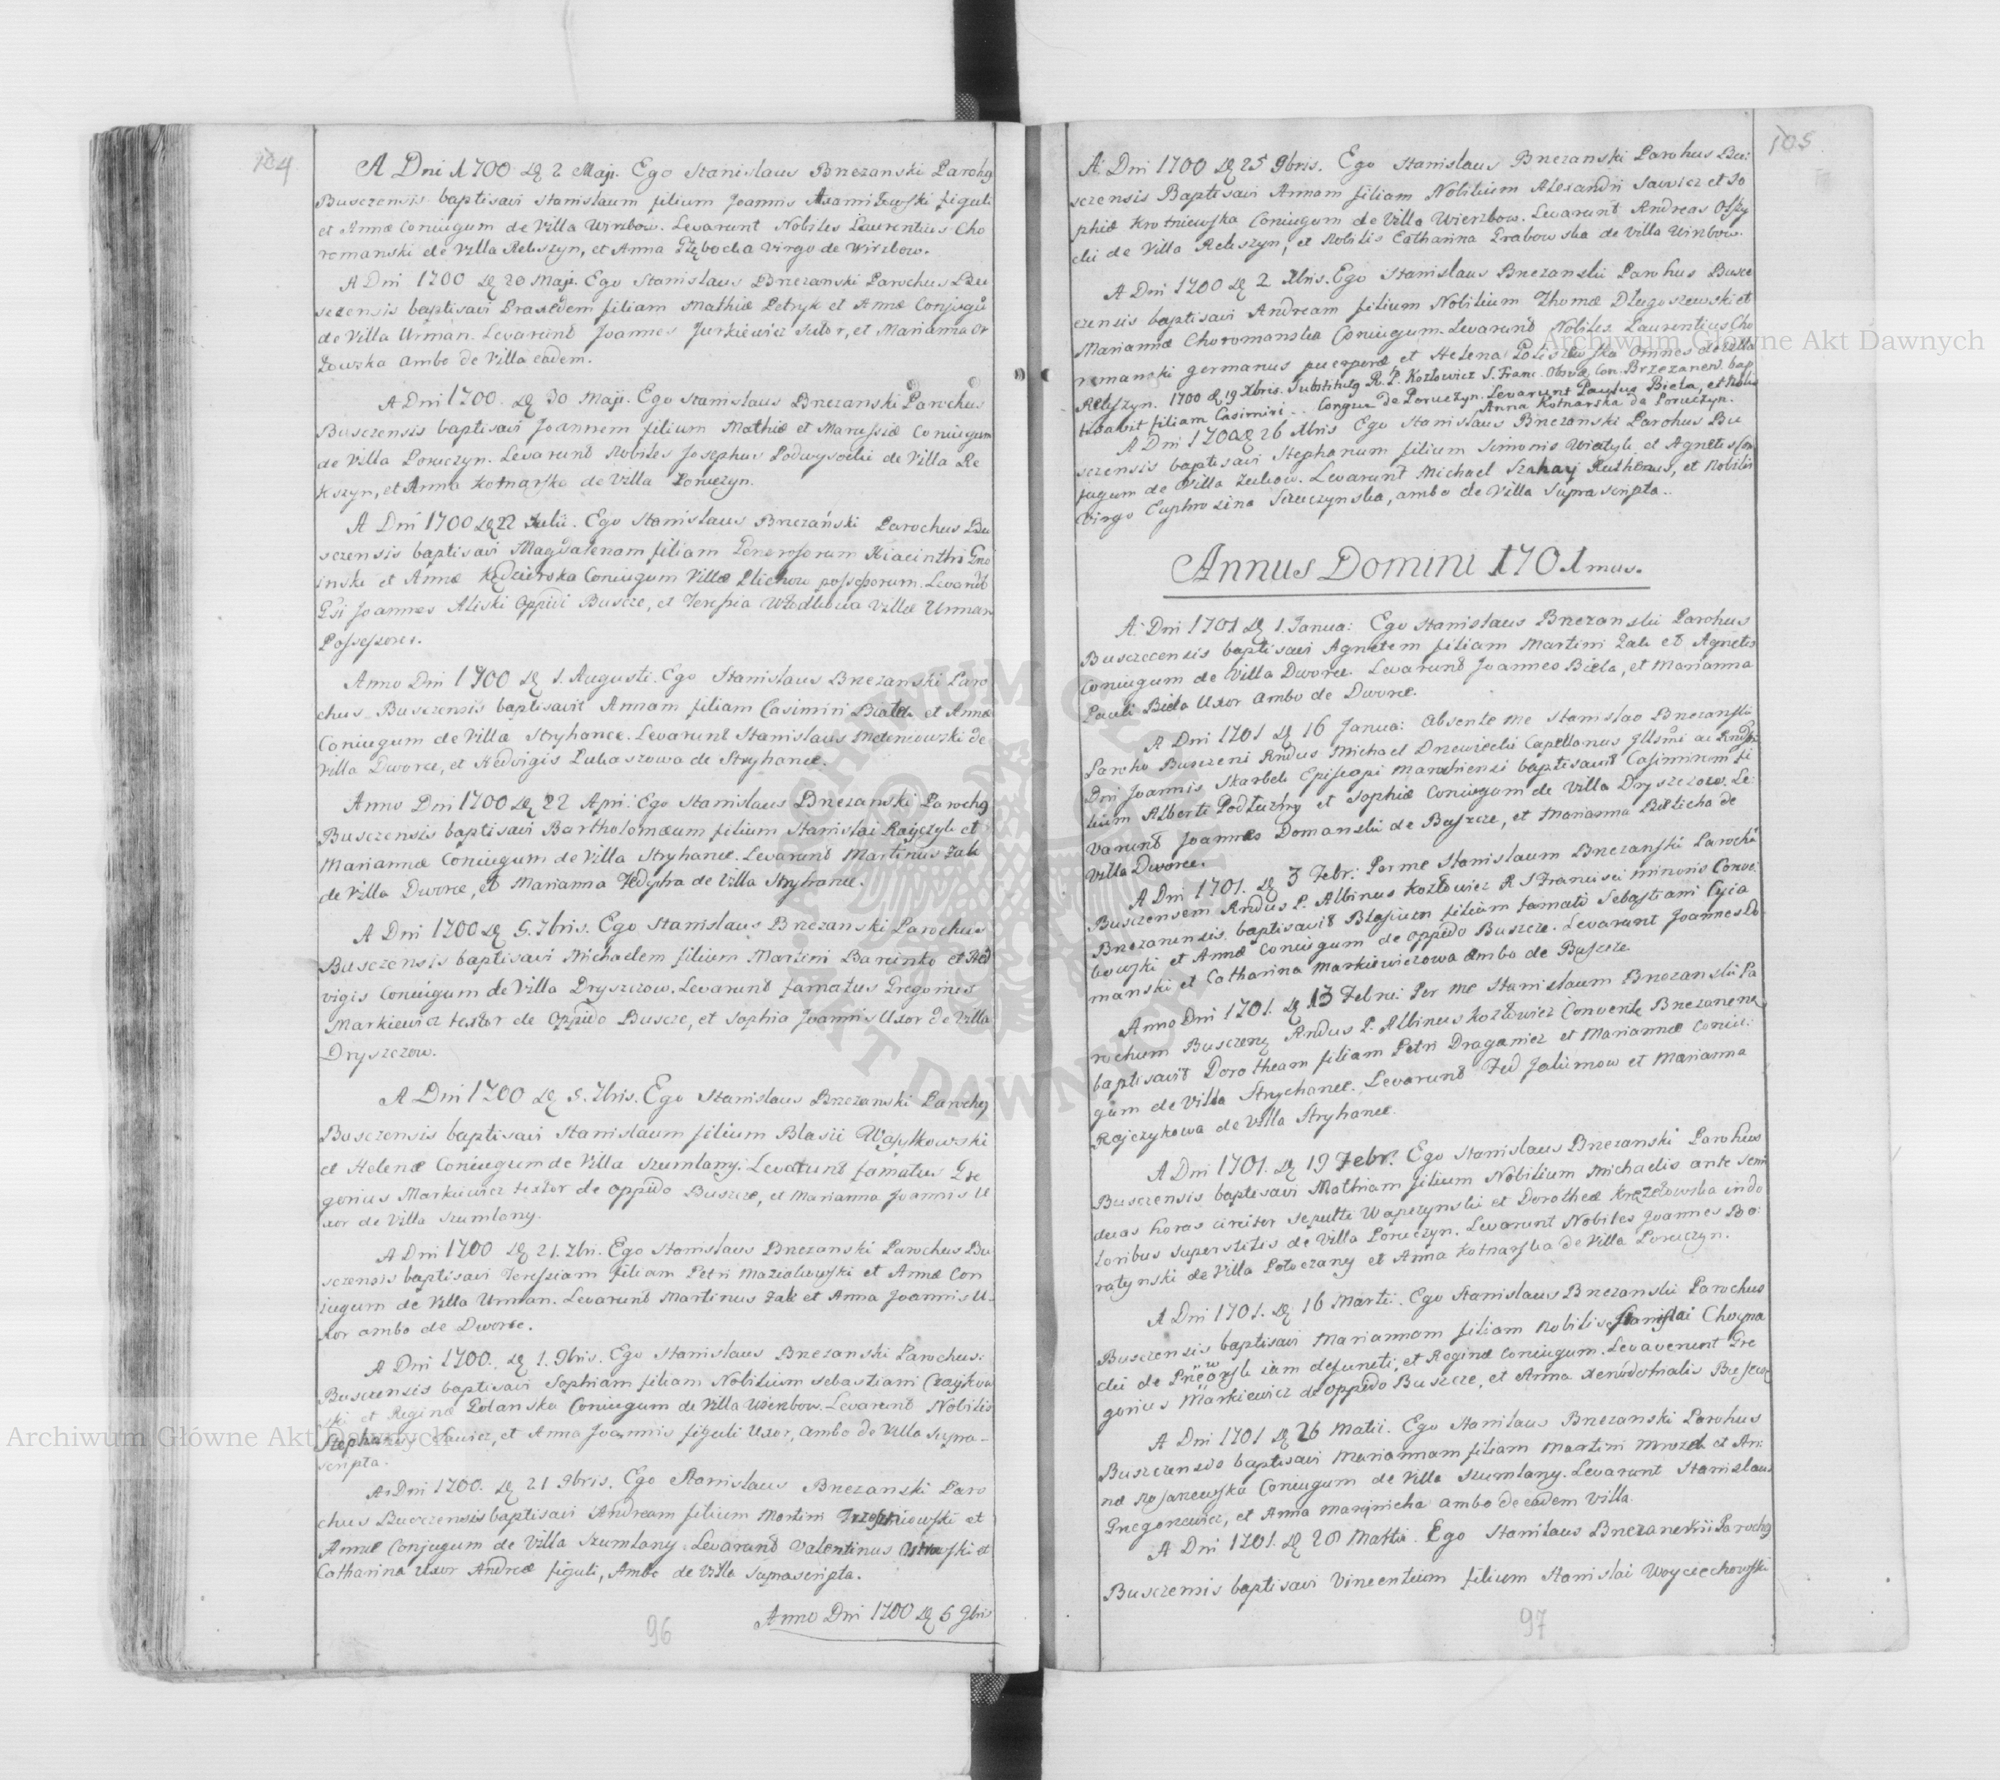 104
A Dni 1700 de 2 Maji. Ego Stanislaus Brzezanski Paroch9
Busczensis baptisavi Stanislaum filium Joannis figuli
et Annæ Coniugum de Villa Wirzbow. Levarunt Nobiles Laurentius Cho
romanski de Villa Rekszyn, et Anna Głębocka Virgo de Wirzbow.
A Dni 1700 de 20 Maji. Ego Stanislaus Brzezanski Parochus Bu
sczensis baptisavi Praxedem filiam Mathiæ Petryk et Annæ Conjugũ
de Villa Urman. Levarunt Joannes Jurkiewicz Sutor, et Marianna Or
łowska ambo de Villa eadem.
A Dni 1700. de 30 Maji. Ego Stanislaus Brzezanski Parochus
Busczensis baptisavi Joannem filium Mathiæ et Marussiæ Coniugum
de Villa Poruczyn. Levarunt Nobiles Josephus Podwysocki de Villa Re
kszyn, et Anna Kotnarska de Villa Poruczyn.
A Dni 1700 de 22 Julii. Ego Stanislaus Brzezański Parochus Bu
sczensis baptisavi Magdalenam filiam Generosorum Hiacinthi
inski et Annæ Kędzierska Coniugum Villæ Plichow possessorum. Levarũt
Gsi Joannes Aliski Oppidi Buscze, et Teressia Villæ Urman
Possessores.
Anno Dni 1700 de 1. Augusti. Ego Stanislaus Brzezanski Paro
chus Busczensis baptisavit Annam filiam Casimiri et Annæ
Coniugum de Villa Stryhance. Levarunt Stanislaus de
Villa Dworce, et Hedvigis Lukaszowa de Stryhance.
Anno Dni 1700 de 22 Apri: Ego Stanislaus Brzezanski Paroch9
Busczensis baptisavi Bartholomæum filium Stanislai Rajczyk et
Mariannæ Coniugum de Villa Stryhance. Levarunt Martinus Zak
de Villa Dworce, et Marianna de Villa Stryhance.
A Dni 1700 de 5. 7bris. Ego Stanislaus Brzezanski Parochus
Busczensis baptisavi Michaelem filium Martini Barenko et Hed
vigis Coniugum de Villa Dryszczow. Levarunt famatus Gregorius
Markiewicz textor de Oppido Buscze, et Sophia Joannis Uxor de Villa
Dryszczow.
A Dni 1700 de 5. 7bris. Ego Stanislaus Brzezanski Paroch9
Busczensis baptisavi Stanislaum filium Blasii Wasylkowski
et Helenæ Coniugum de Villa Szumlany. Levarunt famatus Gre
gorius Markiewicz textor de Oppido Buscze, et Marianna Joannis U
xor de Villa Szumlany.
A Dni 1700 de 21. 7bri. Ego Stanislaus Brzezanski Parochus Bu
sczensis baptisavi Teressiam filiam Petri et Annæ Con
iugum de Villa Urman. Levarunt Martinus Zak et Anna Joannis U
xor ambo de Dworce.
A Dni 1700. de 1. 9bris. Ego Stanislaus Brzezanski Parochus.
Busczensis baptisavi Sophiam filiam Nobilium Sebastiani Czajkow
ski et Reginæ Polanska Coniugum de Villa Wierzbow. Levarunt Nobilis
Stephanus Sawicz, et Anna Joannis figuli Uxor, ambo de Villa supra-
scripta.
A Dni 1700. de 21 9bris. Ego Stanislaus Brzezanski Paro
chus Busczensis baptisavi Andream filium Martini et
Annæ Conjugum de Villa Szumlany. Levarunt Valentinus et
Catharina Uxor Andreæ figuli, Ambo de Villa suprascripta.
Anno Dni 1700 de 5 9bris
96
105
A. Dni 1700 de 25 9bris. Ego Stanislaus Brzezanski Parohus Bu:
sczensis Baptisavi Annam filiam Nobilium Alexandri Sawicz et So
phiæ Krotniewska Coniugum de Villa Wierzbow. Levarunt Andreas
cki de Villa Rekszyn, et Nobilis Catharina Grabowska de Villa Wirzbow.
A Dni 1700 de 2 Xbris. Ego Stanislaus Brzezanski Parohus Busce
czensis baptisavi Andream filium Nobilium Thomæ Długoszewski et
Mariannæ Choromanska Coniugum. Levarunt Nobiles Laurentius Cho
romanski germanus puerperæ et Helena omnes de Villa
Rekszyn. 1700 de 19 Xbris. Substitut9 R. P. Kozłowicz S. Franc. Con. Brzezanen. bap
tisavit filiam Casimiri .. Congue de Poruczyn. Levarunt Paulus Biela, et Nobilis
Anna Kotnarska de Poruczyn.
A Dni 1700 de 26 Xbris Ego Stanislaus Brzezanski Parohus Bu
sczensis baptisavi Stephanum filium Simonis Wiatyk et Agnetis Con
jugum de Villa Żukow. Levarunt Michael Szahay Ruthenus, et Nobilis
Virgo Euphrosina Szuczynska, ambo de Villa Supra scripta..
Annus Domini 1701mus.
A. Dni 1701 de 1. Janua: Ego Stanislaus Brzezanski Parohus
Busczecensis baptisavi Agnetem filiam Martini Zak et Agnetis
Coniugum de Villa Dworce. Levarunt Joannes Biela, et Marianna
Pauli Biela Uxor ambo de Dworce.
A Dni 1701 de 16 Janua: Absente me Stanislao Brzezanski
Paroho Busczeni Rndus Michael Drzewiecki Capellanus Illsmi ac Rndssi
Dni Joannis Skarbek Episcopi baptisavit Casimirum fi
lium Alberti Podłużny et Sophiæ Coniugum de Villa Dryszczow. Le:
varunt Joannes Domanski de Buszcze, et Marianna de
Villa Dworce.
A Dni 1701. de 3 Febr: Per me Stanislaum Brzezanski Parochũ
Busczensem Rndus P. Albinus Kozłowicz R S Francisci minoris Conve:
Brzezanensis baptisavit Blasium filium famati Sebastiani
bowski et Annæ Coniugum de oppido Buszcze. Levarunt Joannes Do
manski et Catharina Markiewiczowa ambo de Buszcze
Anno Dni 1701. de 13 Febru: Per me Stanislaum Brzezanski Pa
rochum Busczens Rndus P. Albinus Kozłowicz Convent9 Brzezanens
baptisavit Dorotheam filiam Petri Draganicz et Mariannæ Coniu:
gum de Villa Strychance. Levarunt Fed Jakimow et Marianna
Rajczykowa de Villa Stryhance.
A Dni 1701. de 19 Febr. Ego Stanislaus Brzezanski Parohus
Busczensis baptisavi Mathiam filium Nobilium Michaelis ante semi
duas horas circiter sepulti Wapczynski et Dorotheæ Krzezelowska in do
loribus superstitis de Villa Poruczyn. Levarunt Nobiles Joannes Bo:
ratynski de Villa Potoczany et Anna Kotnarska de Villa Poruczyn.
A Dni 1701. de 16 Martii. Ego Stanislaus Brzezanski Parochus
Busczensis baptisavi Mariannam filiam Nobilis Stanislai Choyna
cki de iam defuncti, et Reginæ Coniugum. Levaverunt Gre
gorius Markiewicz de oppido Buscze, et Anna Xenodochialis
A Dni 1701 de 26 Matii. Ego Stanilaus Brzezanski Parohus
Busczensis baptisavi Mariannam filiam Martini Mrozek et An:
næ Coniugum de Villa Szumlany. Levarunt Stanislaus
Gregorewicz, et Anna ambo de eadem Villa.
A Dni 1701. de 28 Martii. Ego Stanilaus Brzezanski Paroch9
Busczensis baptisavi Vincentium filium Stanislai Woyciechowski
97
Archiwum Główne Akt Dawnych
© Archiwum Główne Akt Dawnych
ARCHIWUM GŁÓWNE AKT DAWNYCH